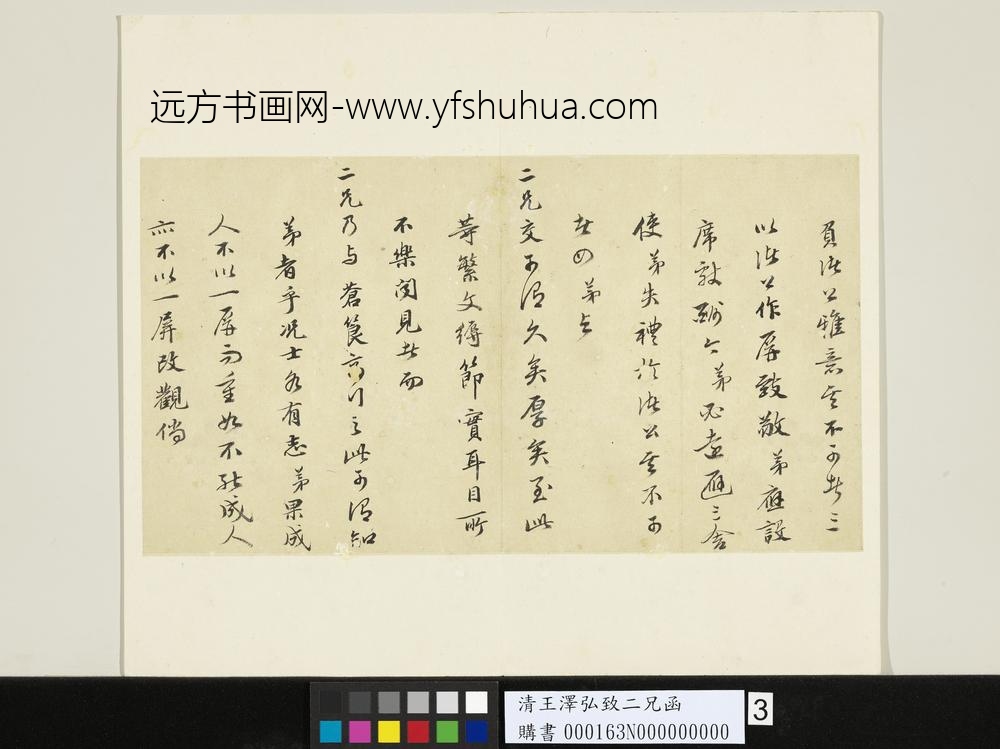 远方书画网-www.yfshuhua.com
負諸公雅意其不可者三
以諸公作屏致敬弟應設
席敬酬今弟必遠避三舍
使弟失禮於諸公其不可
者四弟与
二兄交可謂久矣厚矣至此
等繁文縟節實耳目所
不樂聞見者而
二兄乃与蒼筤亦行之此可謂知
弟者乎况士各有志弟果成
人不以一屏而重如不能成人
亦不以一屏改觀倘
清王澤弘致二兄函
購書 000163N000000000
3